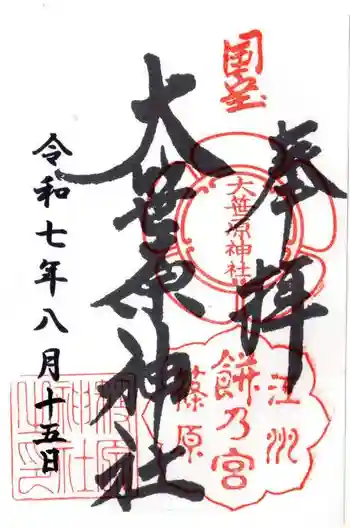 国宝
奉拝
大笹原神社
江州
餅乃宮
篠原
大笹原神社
令和七年八月十五日